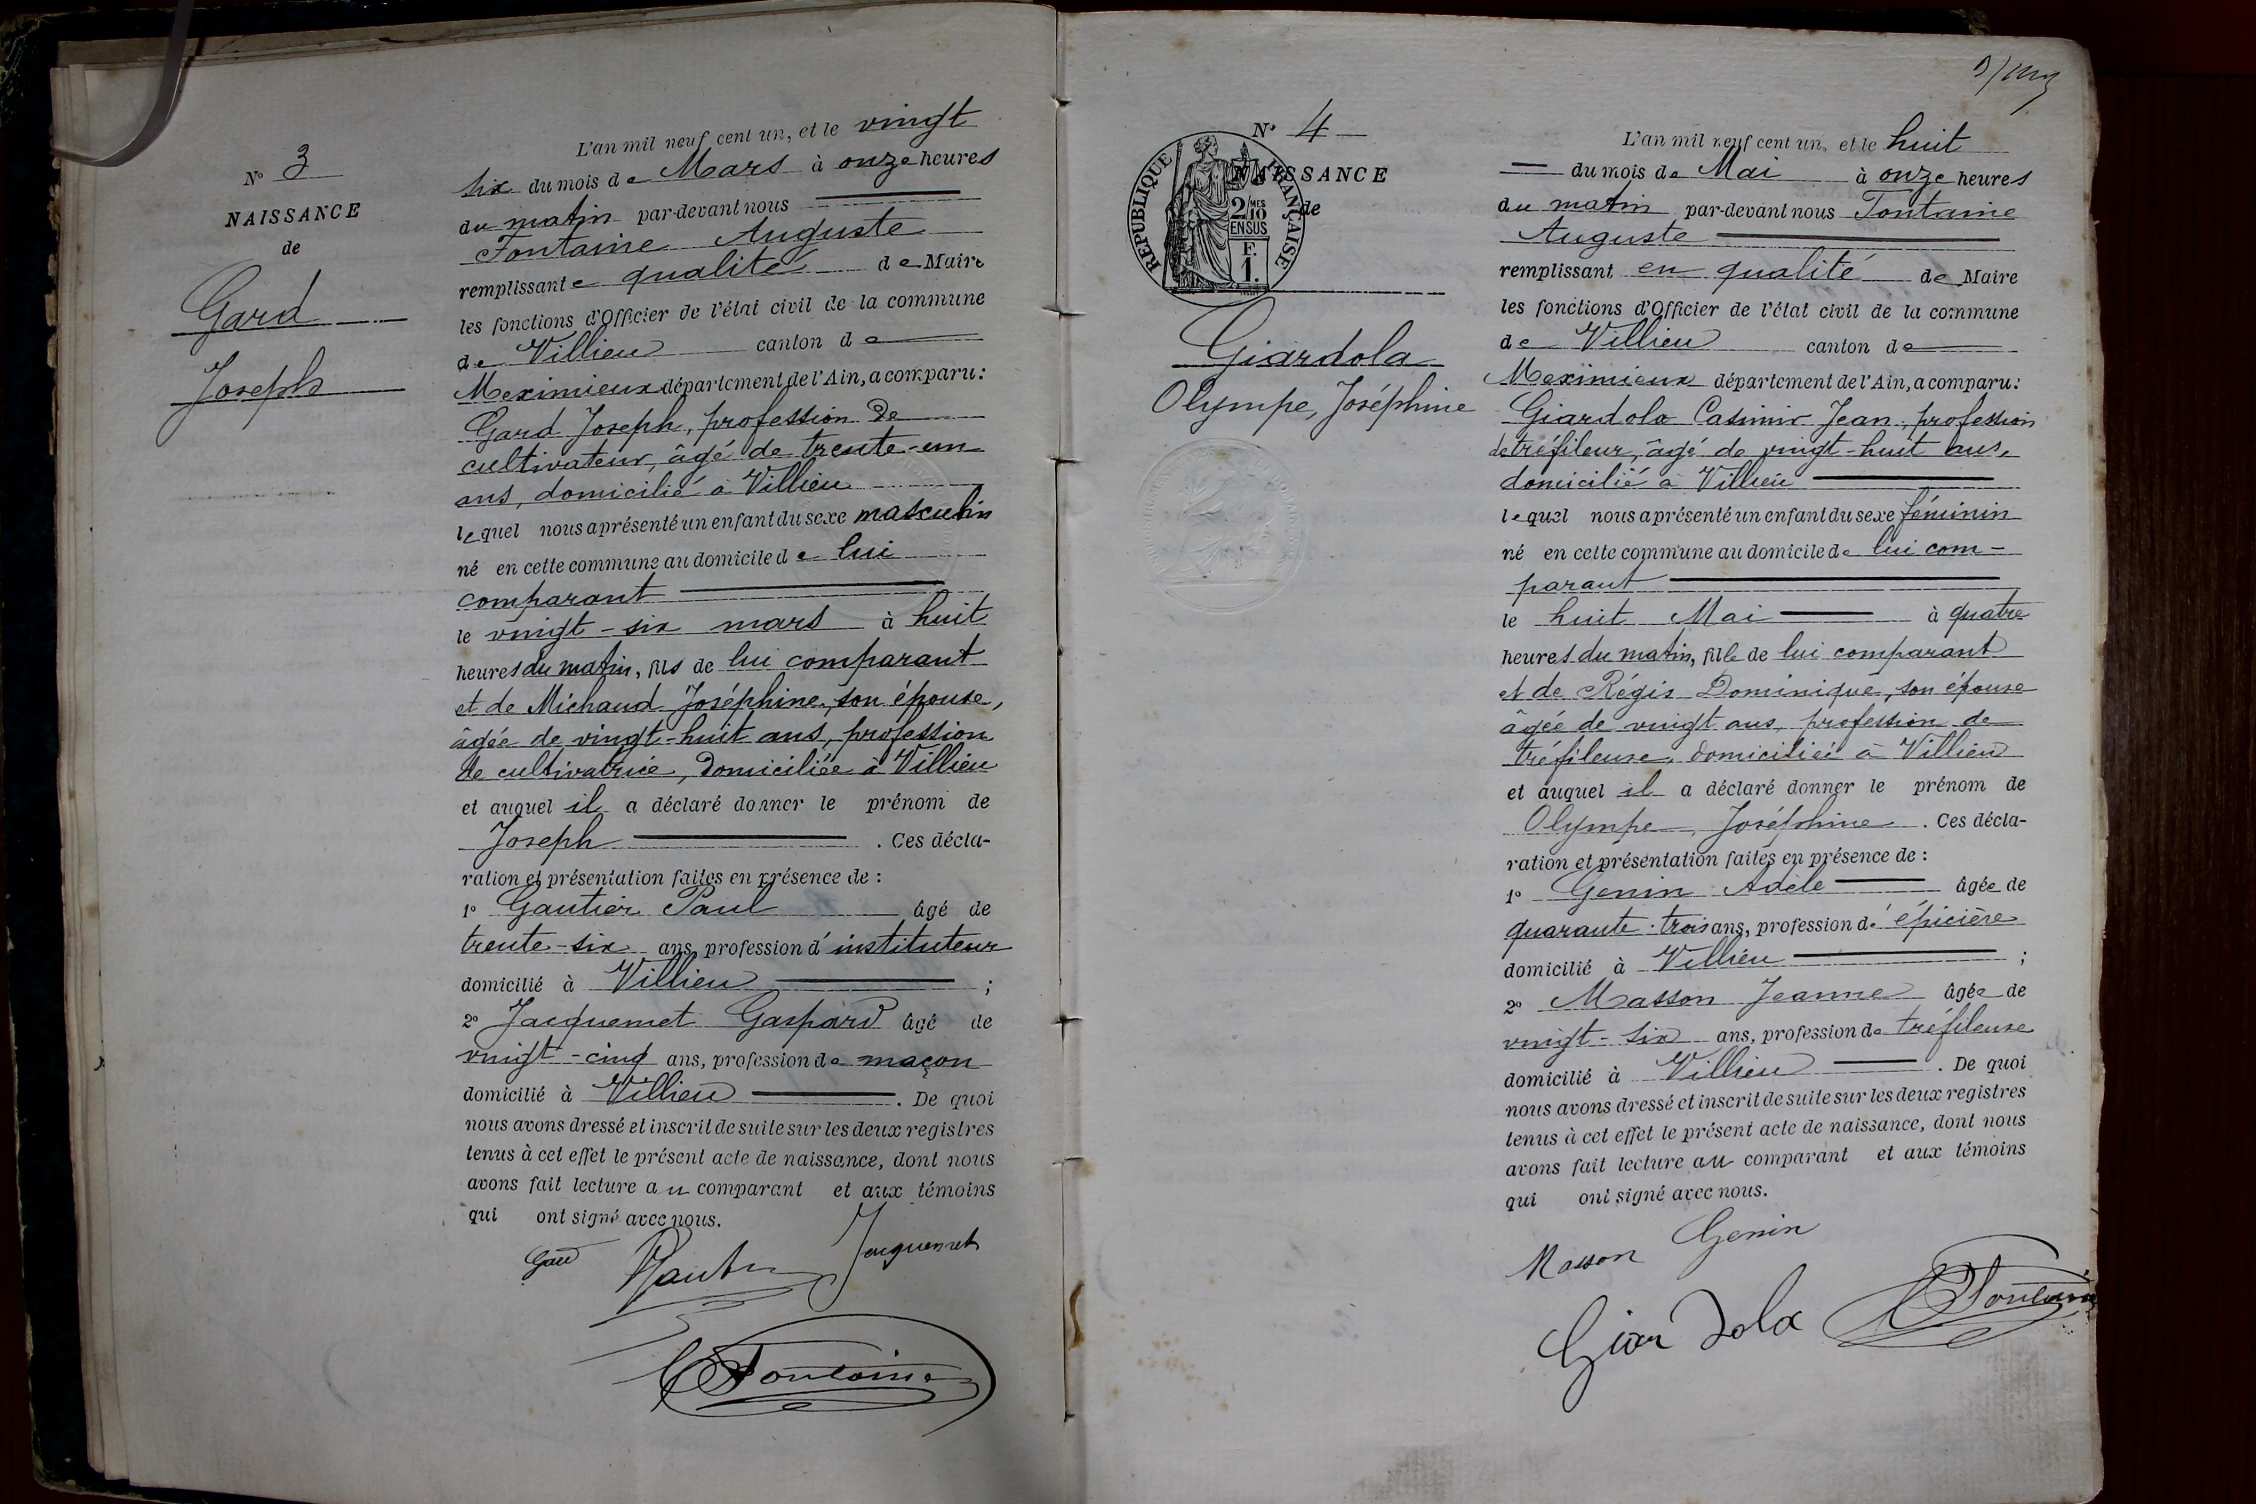 N° 3
NAISSANCE
de
Gard
Joseph
L'an mil neuf cent un, et le vingt
six du mois de Mars à onze heures
du matin par-devant nous
Fontaine Auguste
remplissant e qualité de Maire
les fonctions d'Officier de l'état civil de la commune
de Villieu canton de
Meximieux département de l'Ain, a comparu:
Gard Joseph, profession de
cultivateur, âgé de trente-un
ans, domicilié à Villieu
lequel nous a présenté un enfant du sexe masculin
né en cette commune au domicile de lui
comparant
le vingt-six mars à huit
heures du matin, fils de lui comparant
et de Michaud Joséphine, son épouse,
âgée de vingt-huit ans, profession
de cultivatrice, domiciliée à Villieu
et auquel il a déclaré donner le prénom de
Joseph . Ces décla-
ration et présentation faites en présence de :
1° Gautier Paul âgé de
trente-six ans, profession d'instituteur
domicilié à Villieu ;
2° Jacquemet Gaspard âgé de
vingt-cinq ans, profession de maçon
domicilié à Villieu . De quoi
nous avons dressé et inscrit de suite sur les deux registres
tenus à cet effet le présent acte de naissance, dont nous
avons fait lecture au comparant et aux témoins
qui ont signé avec nous.
Jacquemet
Fontaine
N° 4
NAISSANCE
de
RÉPUBLIQUE FRANÇAISE
2/10 MES
EN SUS
F.
1.
Giardola
Olympe, Joséphine
L'an mil neuf cent un, et le huit
du mois de Mai à onze heures
du matin par-devant nous Fontaine
Auguste
remplissant en qualité de Maire
les fonctions d'Officier de l'état civil de la commune
de Villieu canton de
Meximieux département de l'Ain, a comparu:
Giardola Casimir Jean, profession
de tréfileur, âgé de vingt-huit ans,
domicilié à Villieu
lequel nous a présenté un enfant du sexe féminin
né en cette commune au domicile de lui com-
parant
le huit Mai à quatre
heures du matin, fille de lui comparant
et de Régis Dominique, son épouse
âgée de vingt ans, profession de
tréfileuse, domiciliée à Villieu
et auquel il a déclaré donner le prénom de
Olympe, Joséphine . Ces décla-
ration et présentation faites en présence de :
1° Genin Adèle âgée de
quarante-trois ans, profession d'épicière
domicilié à Villieu ;
2° Masson Jeanne âgée de
vingt-six ans, profession de tréfileuse
domicilié à Villieu . De quoi
nous avons dressé et inscrit de suite sur les deux registres
tenus à cet effet le présent acte de naissance, dont nous
avons fait lecture au comparant et aux témoins
qui ont signé avec nous.
Masson Genin
Giardola Fontaine